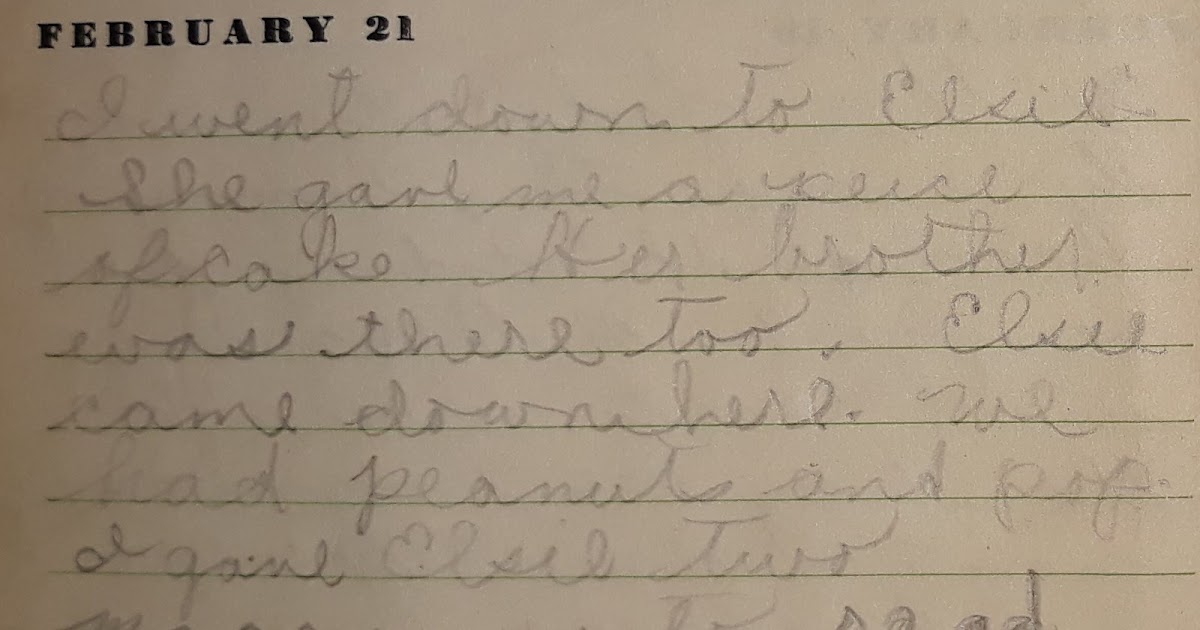 FEBRUARY 21
I went down to Elsie
She gave me a peice
of cake Her brother
was there too. Elsie
came down here. We
had peanuts and pop.
I gave Elsie two
to read